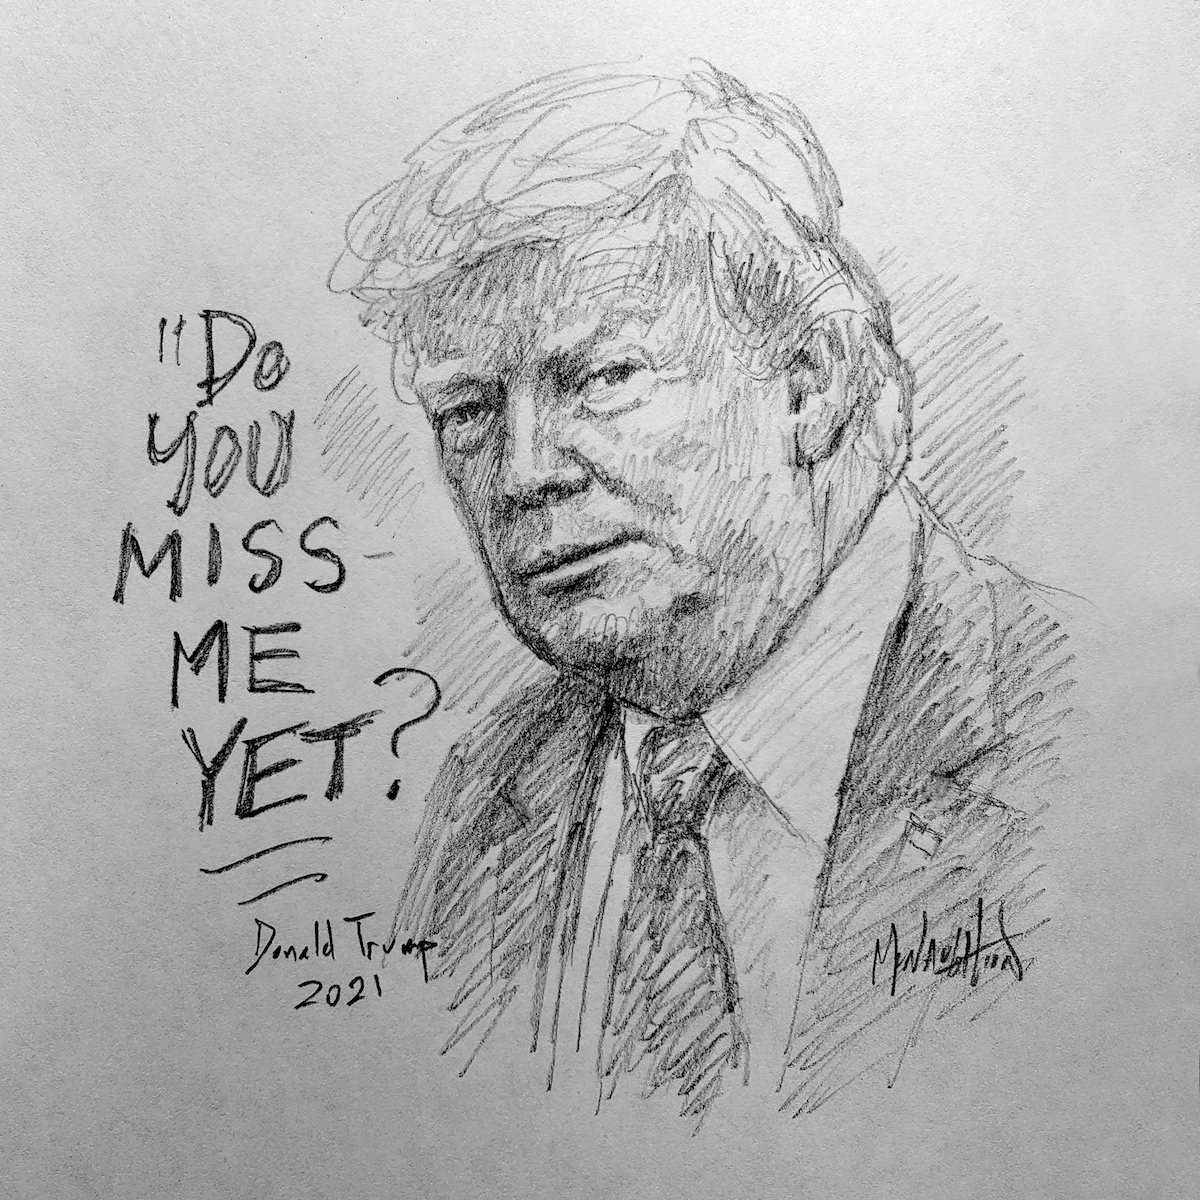 "Do
YOU
MISS
ME
YET?
Donald Trump
2021
McNaughton